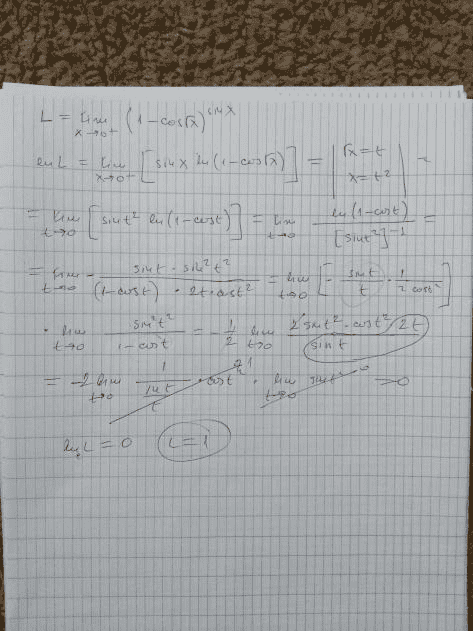 L = lim x→0+ (1 - cos√x)^sin x
ln L = lim x→0+ [sin x ln(1 - cos√x)] = | √x = t x = t² | ~
= lim t→0 [sin t² ln(1 - cos t)] = lim t→0 ln(1 - cos t) / [sin t²]^-1 =
= lim t→0 - sin t · sin² t² / (1 - cos t) · 2t · cos t² = lim t→0 [- sin t / t · 1 / 2 cos t²]
· lim t→0 sin² t² / 1 - cos t = - 1/2 lim t→0 2 sin t² · cos t² · 2t / sin t
= -2 lim t→0 1 / sin t / t · cos t² · lim t→0 sin t² = 0
ln L = 0 L = 1